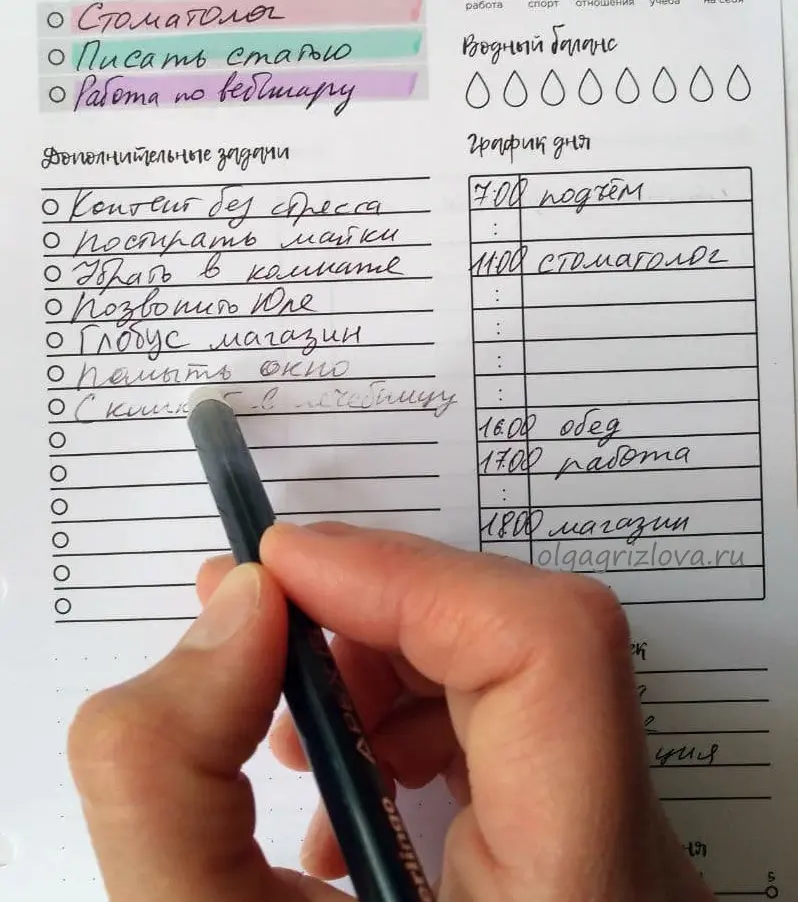 работа спорт отношения учёба на себя
Стоматолог
Писать статью
Работа по вебинару
Водный баланс
Дополнительные задачи
Контент без стресса
постирать майки
Убрать в комнате
Позвонить Юле
Глобус магазин
Помыть окно
С кошкой в лечебницу
График дня
7:00 подъём
:
11:00 стоматолог
:
:
:
:
16:00 обед
17:00 работа
:
18:00 магазин
olgagrizlova.ru
5